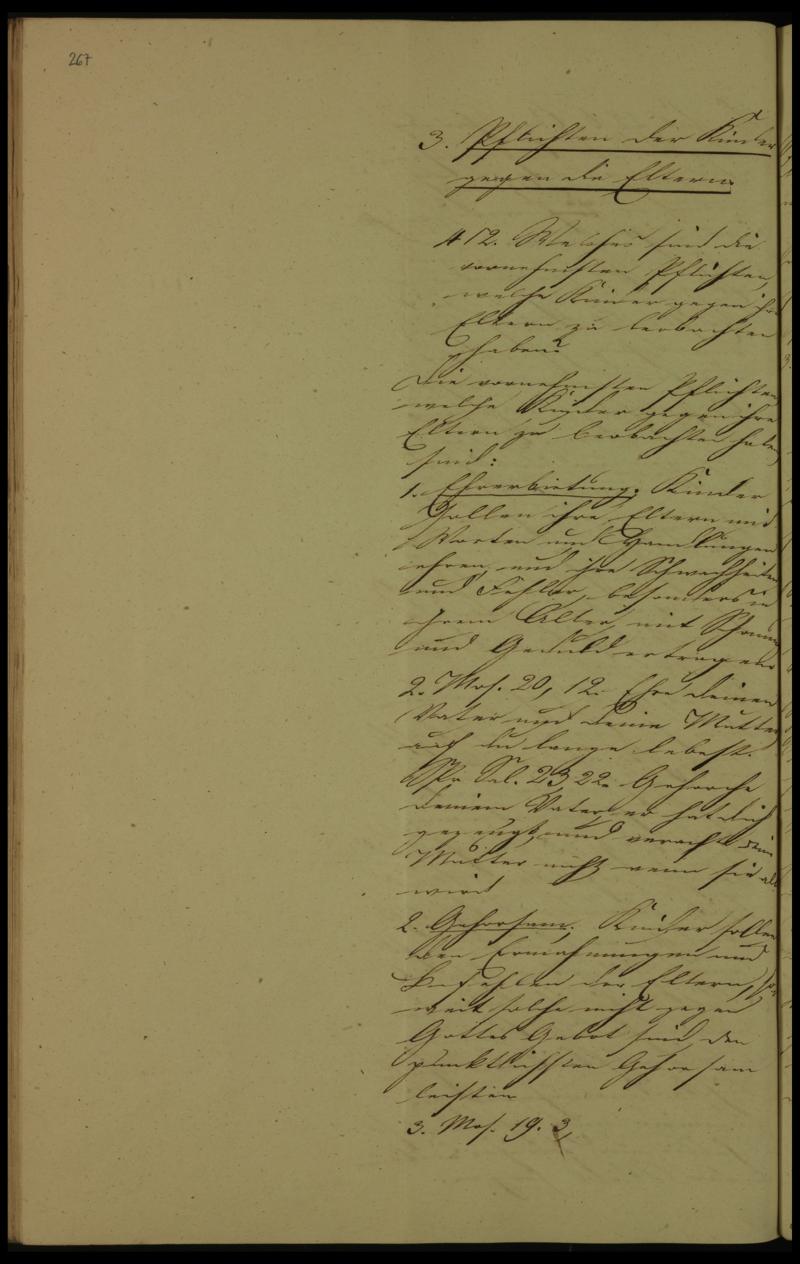 267
3. Pflichten der Kinder
gegen die Eltern.
412. Welches sind die
vornehmsten Pflichten,
welche Kinder gegen ihre
Eltern zu beobachten
haben?
Die vornehmsten Pflichten
welche Kinder gegen ihre
Eltern zu beobachten haben
sind:
1. Ehrerbietung. Kinder
sollen ihre Eltern mit
Worten und Handlungen
ehren, und ihre Schwachheiten
und Fehler, besonders in
ihrem Alter, mit
und Geduld ertragen.
2. Mos. 20, 12. Ehre deinen
Vater und deine Mutter
auf du lange lebest.
Spr. Sal. 23, 22. Gehorche
deinem Vater, er hat dich
gezeugt, und verachte deine
Mutter nicht wenn sie alt
wird
2. Gehorsam. Kinder sollen
den Ermahnungen und
Befehlen der Eltern, so
weit solche nicht gegen
Gottes Gebot sind den
pünktlichsten Gehorsam
leisten
3. Mos. 19. 3,